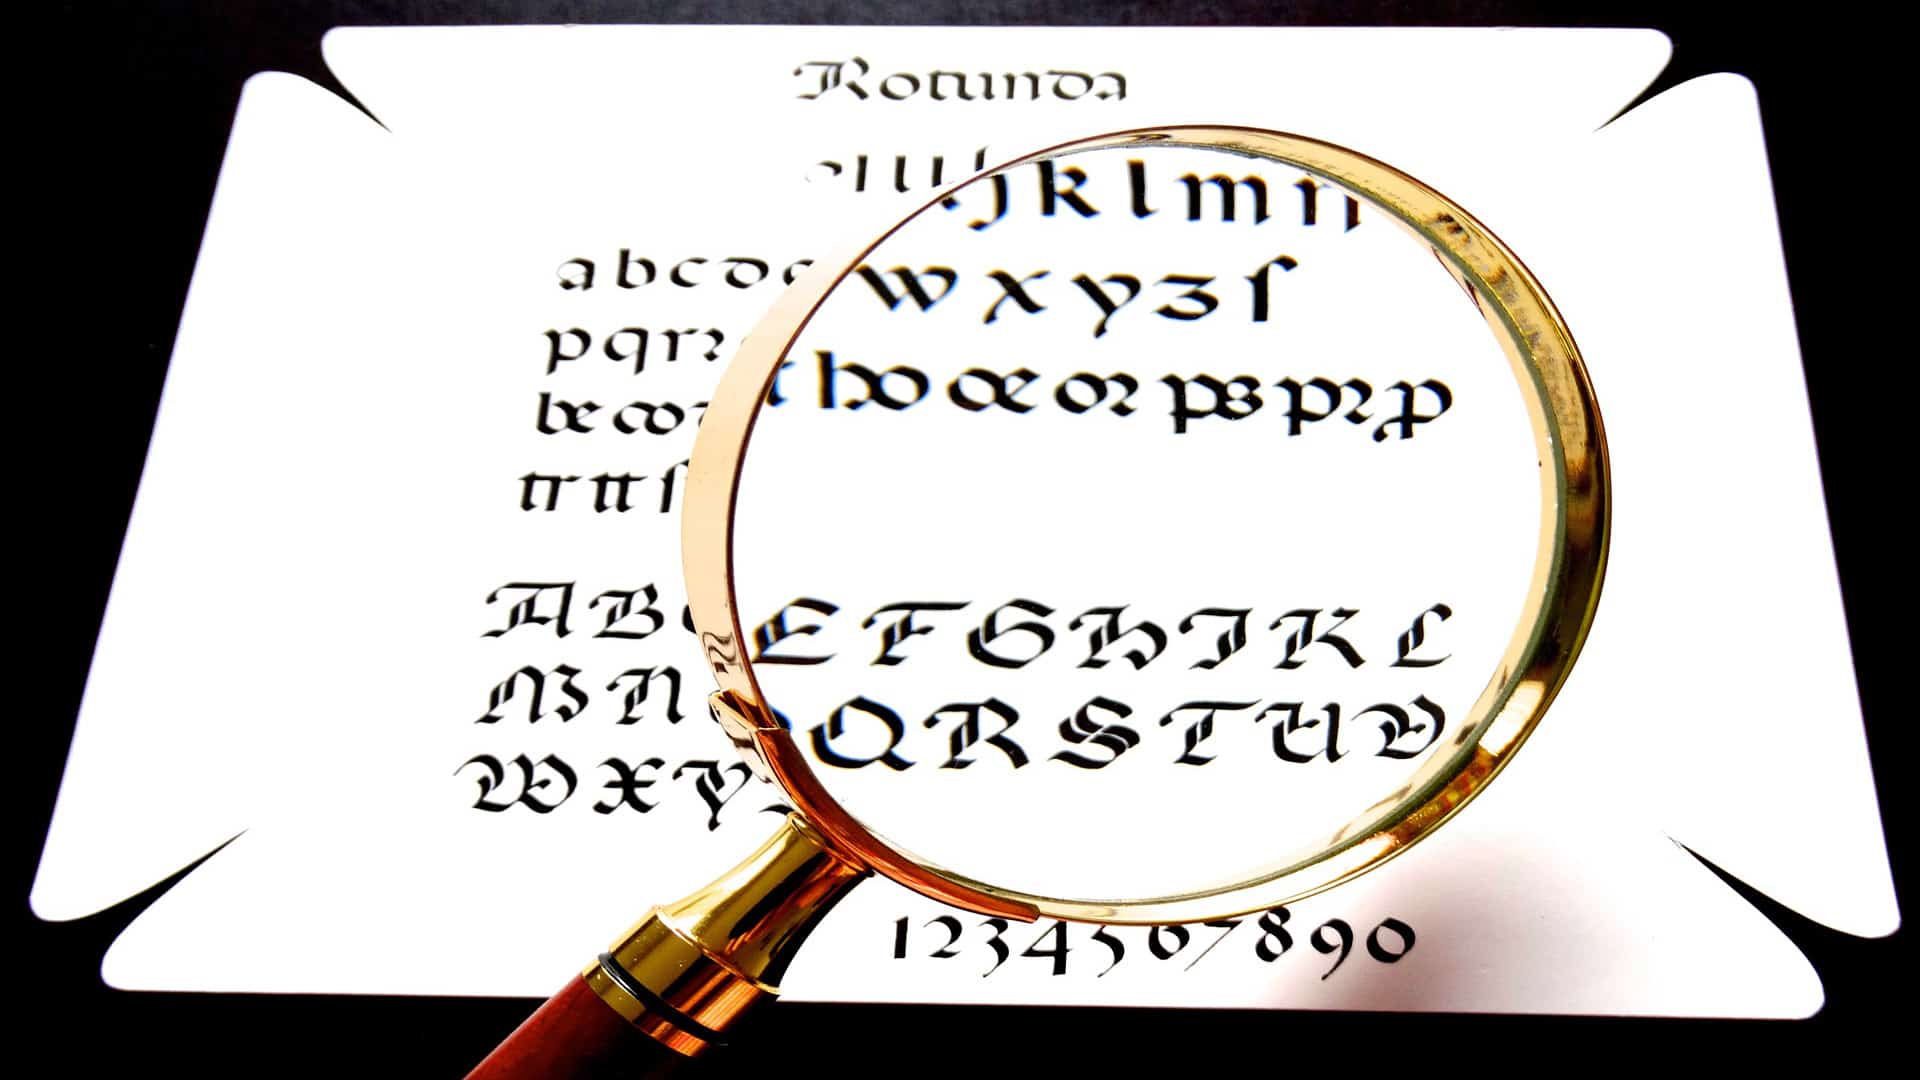 Rotunda
j k l m n
a b c d e
w x y z ſ
p q r ꝛ
be co
ho œ oꝛ ps pꝛ p
tr tt ſ
A B C E F G H I K L
M N Q R S T U V
W X Y
1234567890